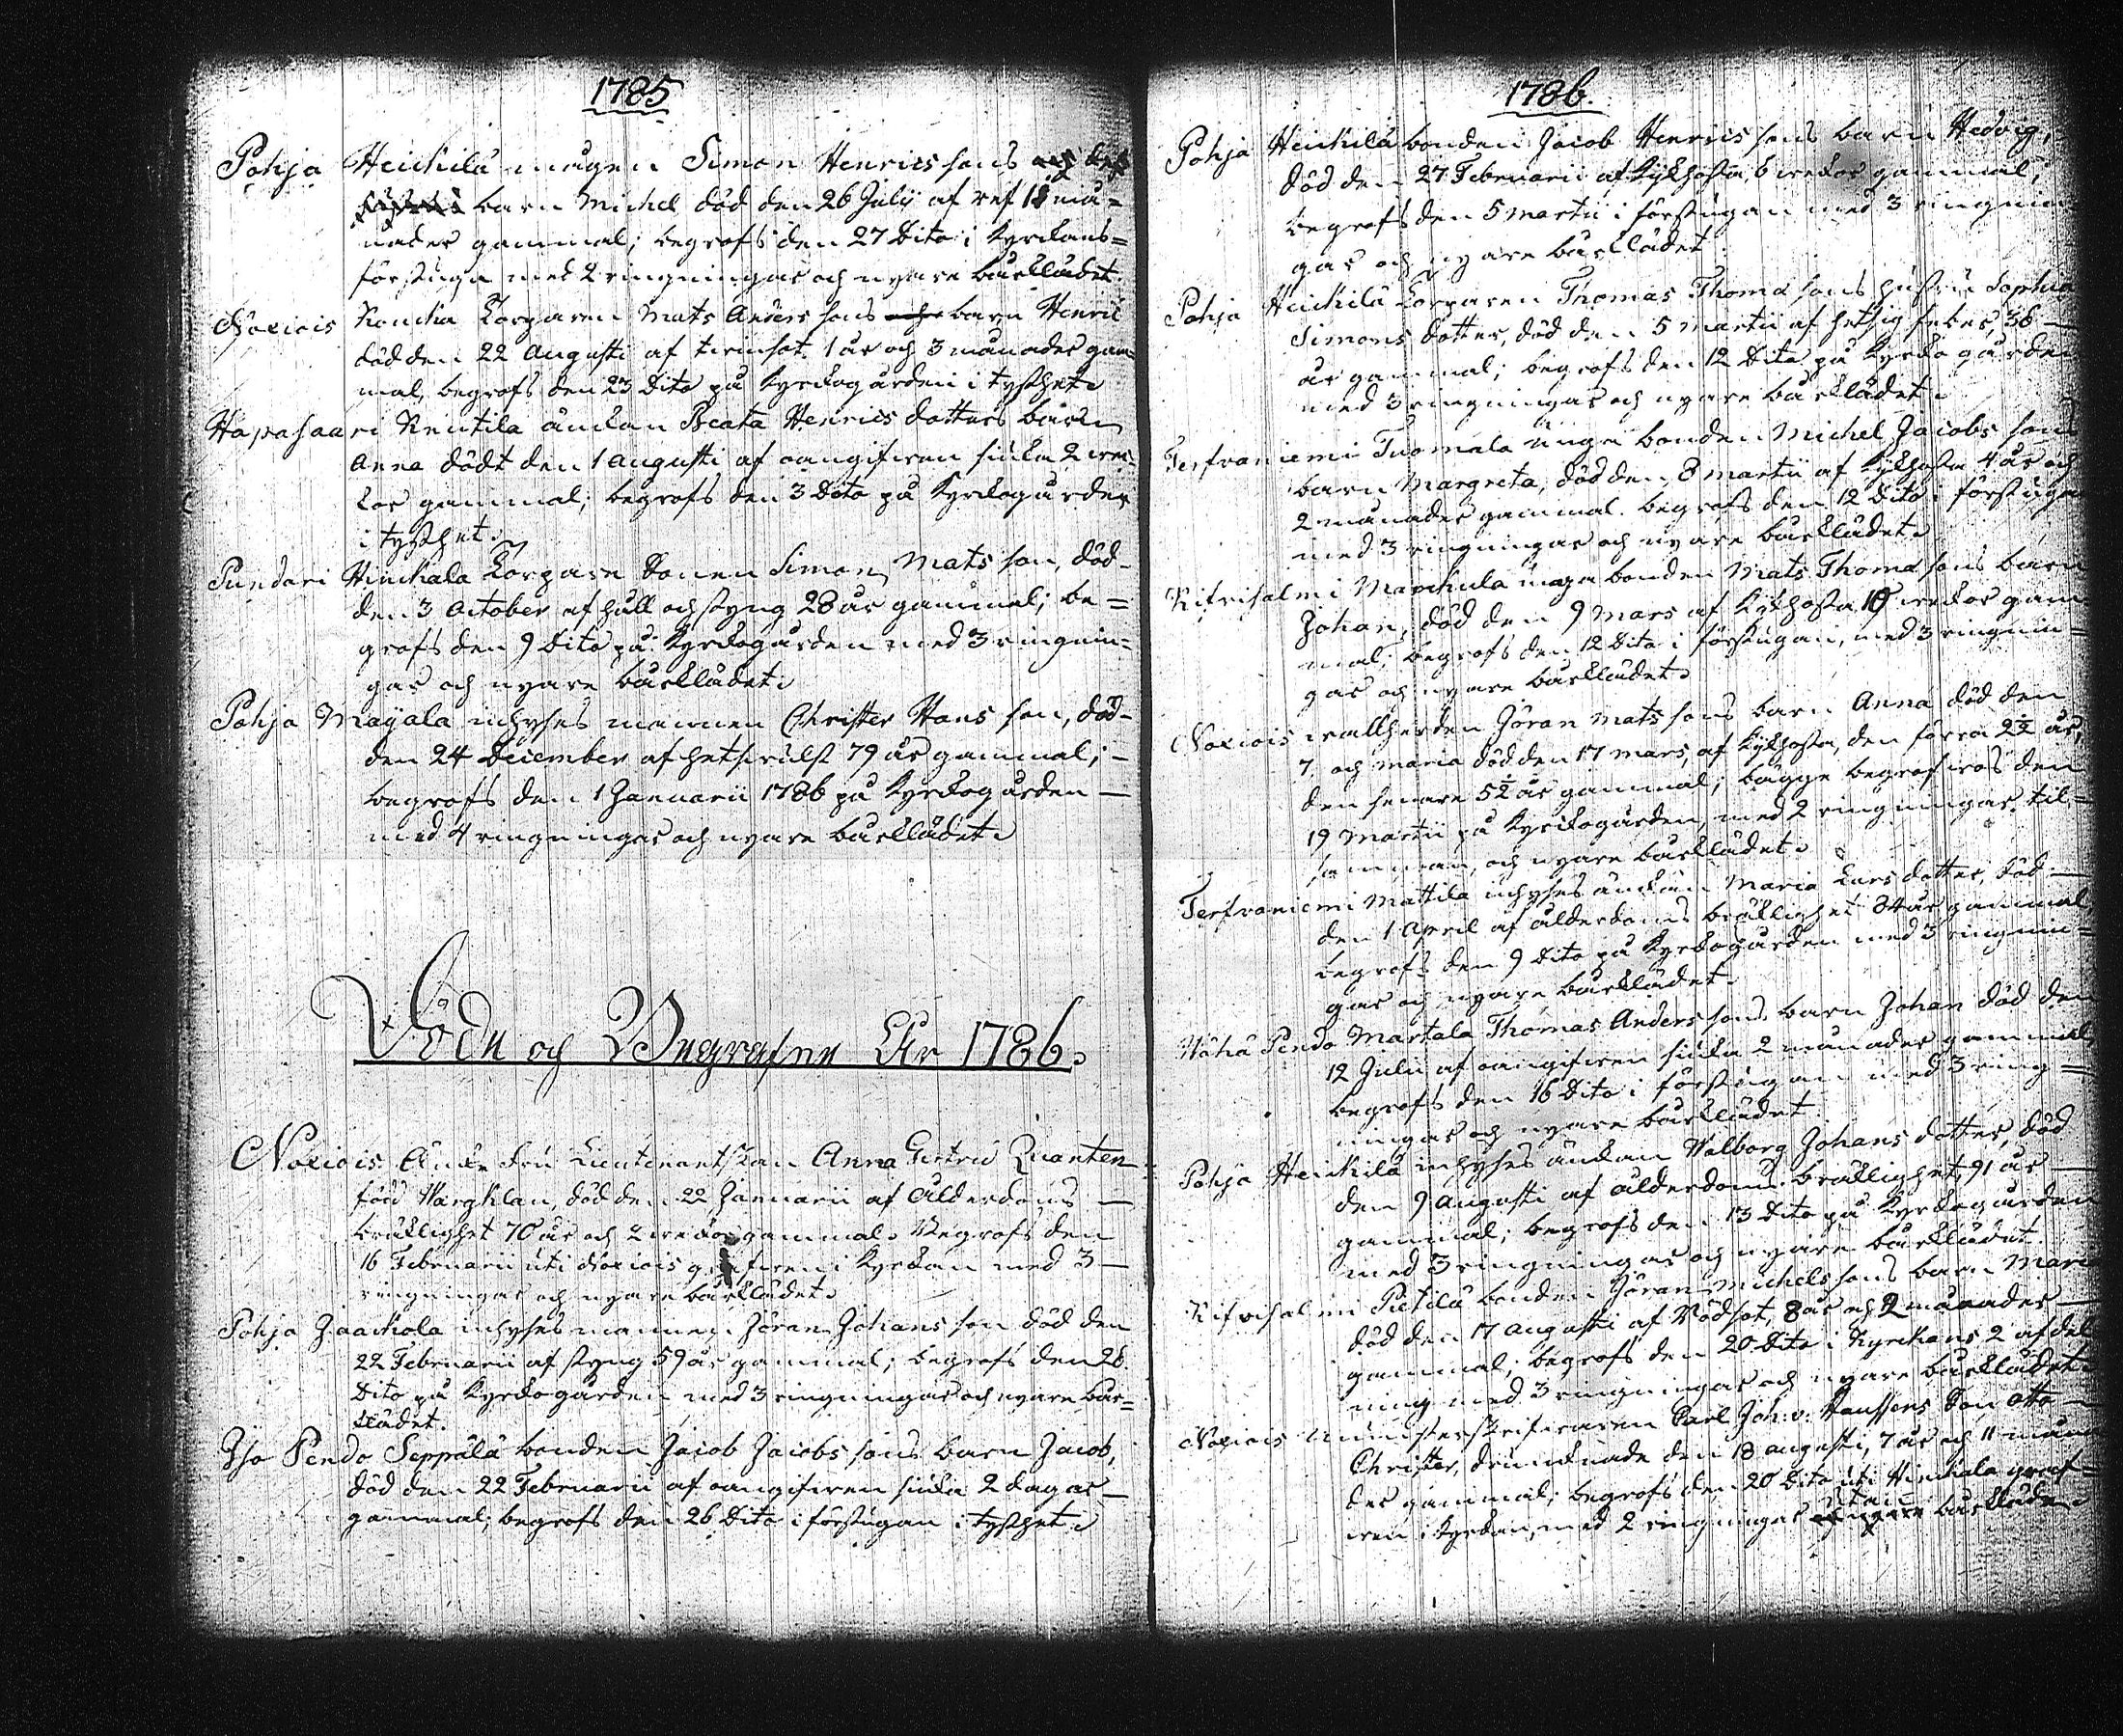 1785
Pohja Heickilä mågen Simon Henrics sons och dess
hustrus barn Michel död den 26 Julij af ref 18 må=
nader gammal; begrofs den 27 Dito i Kyrckans=
förstuga med 2 ringningar och nyare bårklädet.
Noxiois Roncka Torparen Mats Anders sons barn Henric
död den 22 Augusti af twinsot 1 år och 3 månader gam=
mal, begrofs den 23 Dito på Kyrckogården i tysthet.
Hapasaari Rentila änckan Beata Henrics dotters barn
Anna dödt den 1 Augusti af oangifwen siuka 2 wec=
kor gammal; begrofs den 3 Dito på Kyrckogården
i tysthet.
Pundari Hinckala Torpare Sonen Simon Mats son, död
den 3 October af håll och styng 28 år gammal; be=
grofs den 9 Dito på Kyrckogården med 3 ringnin=
gar och nyare bårklädet.
Pohja Mayala inhyses mannen Christer Hans son, död
den 24 December af hetswulst 79 år gammal; –
begrofs den 1 Januarii 1786 på Kyrckogården –
med 4 ringningar och nyare bårklädet.
Döde och Begrafne År 1786.
Noxiois Äncke Fru Lieutenantskan Anna Gertrud Quanten
född Warghlan, död den 22 Januarii af Ålderdoms –
bräklighet 70 år och 2 weckor gammal. Begrofs den
16 Februarii uti Noxiois grafwen i Kyrckan med 3 –
ringningar och nyare bårklädet.
Pohja Jaackola inhyses mannen Jöran Johans son död den
22 Februarii af styng 59 år gammal; begrofs den 26
Dito på Kyrckogården med 3 ringningar och nyare bår=
klädet.
Iso Pendo Seppälä bonden Jacob Jacobs sons barn Jacob,
död den 22 Februarii af oangifwen siuka 2 dagar –
gammal; begrofs den 26 Dito i förstugan i tysthet.
1786.
Pohja Heickilä bonden Jacob Henrics sons barn Hedvig,
död den 27 Februarii af Kikhosta, 6 weckor gammal;
begrofs den 5 Martii i förstugan med 3 ringnin
gar och nyare bårklädet.
Pohja Heickilä Torparen Thomas Thomæ sons hustru Sophia
Simons dotter, död den 5 Martii af hetsig feber, 36 –
år gammal; begrofs den 12 Dito på Kyrckogården
med 3 ringningar och nyare bårklädet.
Terfvaniemi Tuomala unga bonden Michel Jacobs sons
barn Margreta, död den 8 Martii af Kikhosta 4 år och
2 månader gammal. begrofs den 12 Dito i förstuga
med 3 ringningar och nyare bårklädet.
Kifvisalmi Manckula unga bonden Mats Thomæ sons barn
Johan, död den 9 Mars af Kikhosta 10 weckor gam
mal; begrofs den 12 Dito i förstugan, med 3 ringnin=
gar och nyare bårklädet.
Noxiois wallherden Jöran Mats sons barn Anna död den
7 och Maria död den 17 Mars, af Kikhosta, den förra 2½ år,
den senare 5½ år gammal; bägge begrofwos den
19 Martii på Kyrckogården, med 2 ringningar til=
samman, och nyare bårklädet.
Terfvaniemi Mattila inhyses änckan Maria Lars dotter, död –
den 1 April af ålderdoms bräklighet 84 år gammal,
begrofs den 9 Dito på Kyrckogården med 3 ringnin=
gar och nyare bårklädet.
Wähä Pendo Martala Thomas Anders sons barn Johan död den
12 Julii af oangifwen siuka 2 månader gammal,
begrofs den 16 Dito i förstugan med 3 ring=
ningar och nyare bårklädet.
Pohja Heickilä inhyses änckan Walborg Johans dotter, död
den 9 Augusti af ålderdoms bräklighet, 91 år –
gammal; begrofs den 13 Dito på Kyrckogården
med 3 ringningar och nyare bårklädet.
Kifvisalmi Pietilä bonden Jöran Michels sons barn Maria
död den 17 Augusti af Rödsot, 8 år och 2 månader –
gammal; begrofs den 20 Dito i Kyrckans 2 afdel
ning med 3 ringningar och nyare bårklädet.
Noxiois Munsterskrifwaren Carl Joh: v: Haussens Son Otto –
Christer, drunknade den 18 Augusti, 7 år och 11 måna
der gammal; begrofs den 20 Dito uti Hinckala graf=
wen i Kyrckan, med 2 ringningar utan bårkläde.